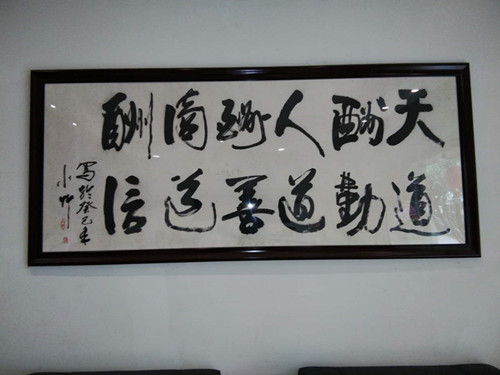 天道
酬勤
人道
酬善
商道
酬信
写於癸巳年